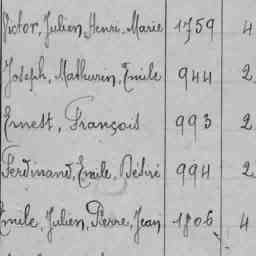 Victor, Julien, Henri, Marie 1759 4
Joseph, Mathurin, Emile 944 2
Ernest, François 993 2
Ferdinand, Emile, Désiré 994 2
Emile, Julien, Pierre, Jean 1806 4